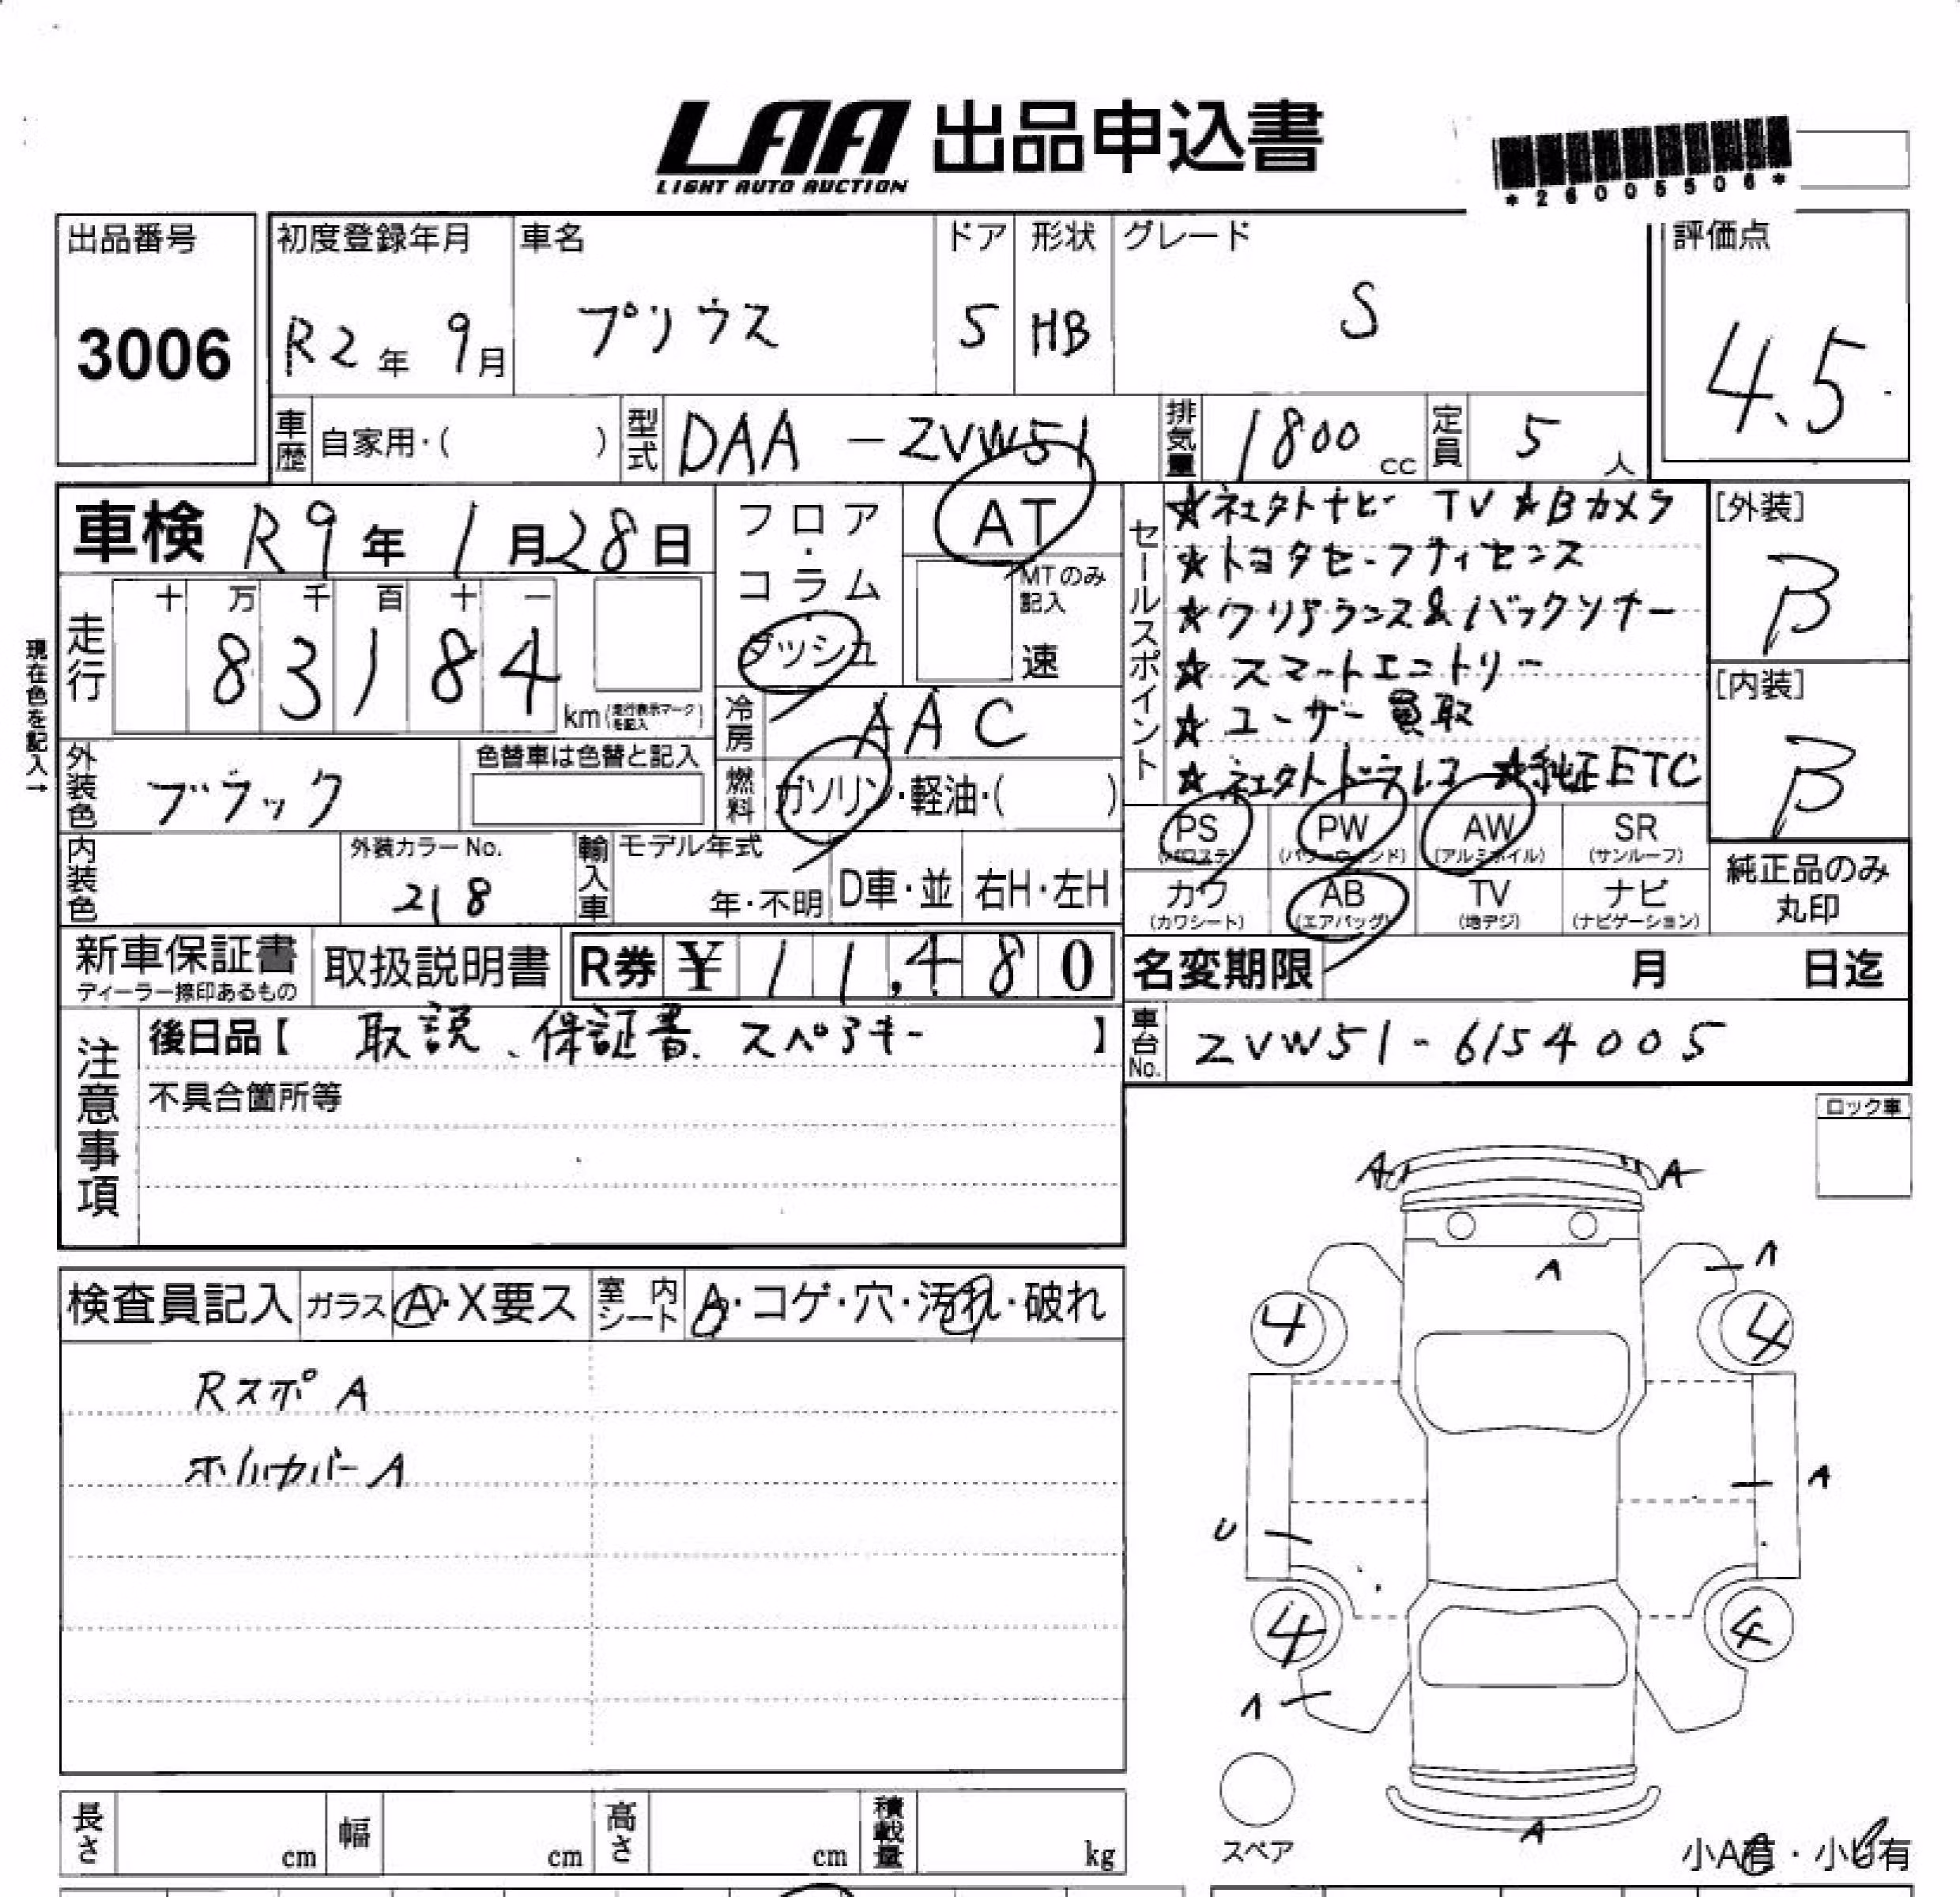 LAA 出品申込書
LIGHT AUTO AUCTION
*26005506*
出品番号
3006
初度登録年月
R2年 9月
車名
プリウス
ドア
5
形状
HB
グレード
S
評価点
4.5
車歴 自家用・( )
型式 DAA-ZVW51
排気量 1800 cc
定員 5 人
車検 R9年 1月28日
現在色を記入→
走行
十 万 千 百 十 一
8 3 1 8 4
km(走行表示マークを記入)
フロア・コラム・ダッシュ
AT
MTのみ記入
速
冷房 AAC
燃料 ガソリン・軽油・( )
外装色 ブラック
色替車は色替と記入
内装色
外装カラーNo.
218
輸入車
モデル年式
年・不明
D車・並
右H・左H
セールスポイント
★社外ナビ TV ★Bカメラ
★トヨタセーフティセンス
★クリアランス&バックソナー
★スマートエントリー
★ユーザー買取
★社外ドラレコ ★純正ETC
[外装]
B
[内装]
B
PS
(パワステ)
PW
(パワーウインド)
AW
(アルミホイル)
SR
(サンルーフ)
カワ
(カワシート)
AB
(エアバッグ)
TV
(地デジ)
ナビ
(ナビゲーション)
純正品のみ
丸印
新車保証書
ディーラー捺印あるもの
取扱説明書
R券 ¥ 11,480
名変期限 月 日迄
注意事項
後日品【 取説、保証書、スペアキー 】
不具合箇所等
車台No. ZVW51-6154005
ロック車
検査員記入
ガラス A・X要ス
室内シート A・コゲ・穴・汚れ・破れ
Rスポ A
ホイルカバー A
A A
A A
4 4
A
U
4 4
A
A
スペア
小A有・小U有
長さ cm
幅 cm
高さ cm
積載量 kg